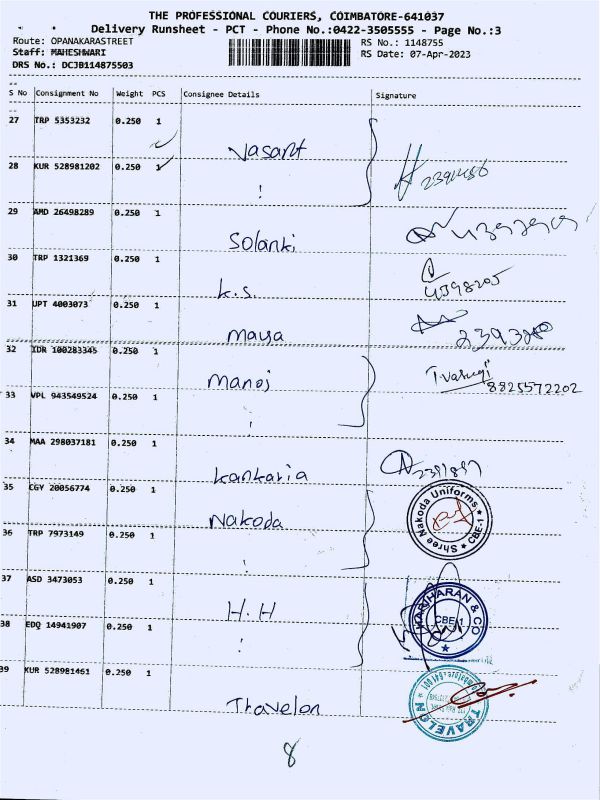 THE PROFESSIONAL COURIERS, COIMBATORE-641037
Delivery Runsheet - PCT - Phone No.:0422-3505555 - Page No.:3
Route: OPANAKARASTREET RS No.: 1148755
Staff: MAHESHWARI RS Date: 07-Apr-2023
DRS No.: DCJB114875503
S No Consignment No Weight PCS Consignee Details Signature
27 TRP 5353232 0.250 1 Vasant
28 KUR 528981202 0.250 1
29 AMD 26498289 0.250 1 Solanki
30 TRP 1321369 0.250 1 K.S.
31 UPT 4003073 0.250 1 Maya
32 IDR 100283345 0.250 1 Manoj T vasugi 8825572202
33 VPL 943549524 0.250 1
34 MAA 298037181 0.250 1 Kankaria
35 CGY 20056774 0.250 1 Nakoda Shree Nakoda Uniforms CBE-1
36 TRP 7973149 0.250 1
37 ASD 3473053 0.250 1 H.H
38 EDQ 14941907 0.250 1 HARIHARAN & CO CBE-1
39 KUR 528981461 0.250 1 Travelon TRAVELON
8